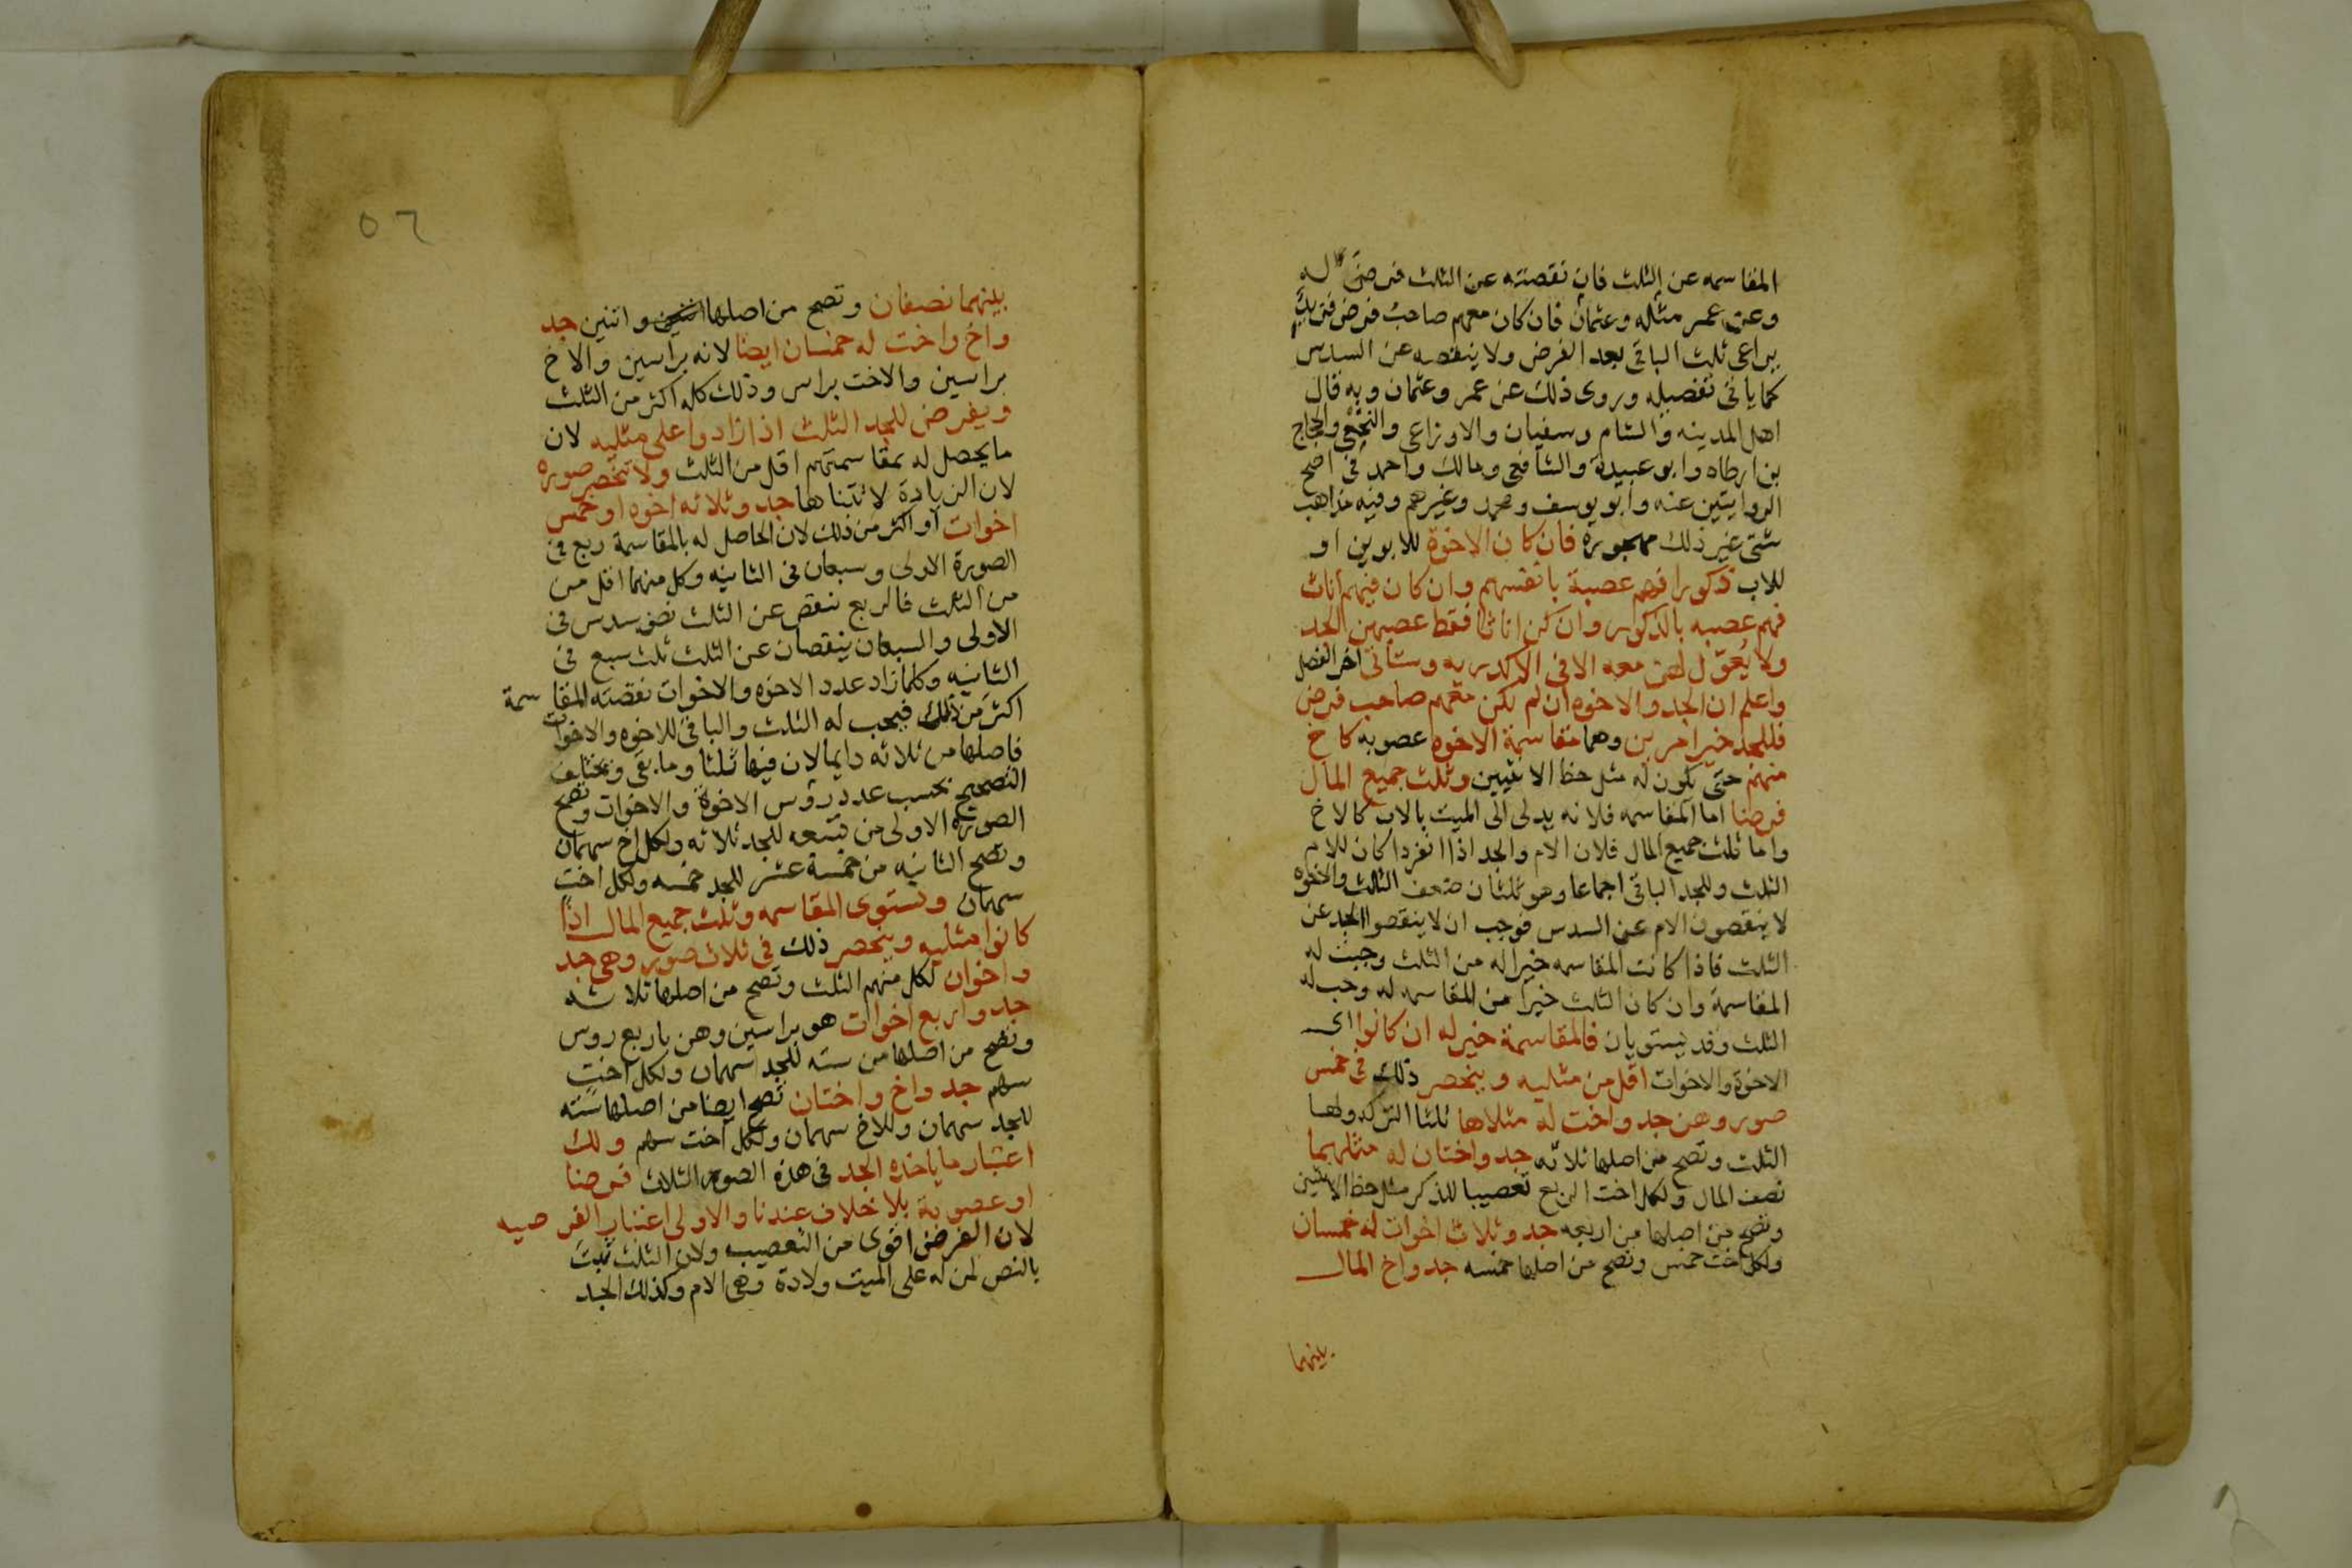 المقاسمه عن الثلث فان نقصته عن الثلث فرضى له
وعن عمر مثله وعثمان فان كان معهم صاحب فرض فزيد
يراعى ثلث الباقى بعد الفرض ولا ينقصه عن السدس
كما ياتى تفصيله وروى ذلك عن عمر وعثمان وبه قال
اهل المدينه والشام وسفيان والاوزاعى والنخعى والحجاج
بن ارطاه وابو عبيدة والشافعى ومالك واحمد فى اصح
الروايتين عنه وابو يوسف ومحمد وغيرهم وفيه مذاهب
شتى غير ذلك مهجوره فان كان الاخوة للابوين او
للاب ذكورا فهم عصبة بانفسهم وان كان فيهم اناث
فهم عصبه بالذكور وان كن اناثا فقط عصبهن الجد
ولا يعول لهن معه الا فى الاكدريه وستاتى اخر الفصل
واعلم ان الجد والاخوه ان لم يكن معهم صاحب فرض
فللجد خير امرين وهما مقاسمة الاخوه عصوبه كاخ
منهم حتى يكون له مثل حظ الانثيين وثلث جميع المال
فرضا اما المقاسمه فلانه يدلى الى الميت بالاب كالاخ
واما ثلث جميع المال فلان الام والجد اذا انفردا كان للام
الثلث وللجد الباقى اجماعا وهو ثلثان ضعف الثلث والاخوه
لا ينقصون الام عن السدس فوجب ان لا ينقصوا الجد عن
الثلث فاذا كانت المقاسمه خيرا له من الثلث وجبت له
المقاسمة وان كان الثلث خيرا من المقاسمه له وجب له
الثلث وقد يستويان فالمقاسمة خير له ان كانوا اى
الاخوة والاخوات اقل من مثليه وينحصر ذلك فى خمس
صور وهن جد واخت له مثلاها ثلثا التركه ولها
الثلث وتصح من اصلها ثلاثه جد واختان له مثلهما
نصف المال ولكل اخت الربع تعصيبا للذكر مثل حظ الانثيين
وتصح من اصلها من اربعه جد وثلاث اخوات له خمسان
ولكل اخت خمس وتصح من اصلها خمسه جد واخ المال
بينهما
٥٦
بينهما نصفان وتصح من اصلها واثنين جد
واخ واخت له خمسان ايضا لانه براسين والاخ
براسين والاخت براس وذلك كله اكثر من الثلث
ويفرض للجد الثلث اذا زادوا على مثليه لان
ما يحصل له بمقاسمتهم اقل من الثلث ولا تنحصر صوره
لان الزيادة لا تتناها جد وثلاثه اخوه او خمس
اخوات او اكثر من ذلك لان الحاصل له بالمقاسمة ربع فى
الصورة الاولى وسبعان فى الثانيه وكل منهما اقل من
من الثلث فالربع ينقص عن الثلث نصف سدس فى
الاولى والسبعان ينقصان عن الثلث ثلث سبع فى
الثانيه وكلما زاد عدد الاخوه والاخوات نقصته المقاسمة
اكثر من ذلك فيجب له الثلث والباقى للاخوه والاخوات
فاصلها من ثلاثه دايما لان فيها ثلثا وما بقى ويختلف
التصحيح بحسب عدد رؤس الاخوة والاخوات وتصح
الصورة الاولى من تسعه للجد ثلاثه ولكل اخ سهمان
وتصح الثانيه من خمسة عشر للجد خمسه ولكل اخت
سهمان وتستوى المقاسمه وثلث جميع المال اذا
كانوا مثليه وينحصر ذلك فى ثلاث صور وهى جد
واخوان لكل منهم الثلث وتصح من اصلها ثلاثه
جد واربع اخوات هو براسين وهن باربع روس
وتصح من اصلها من سته للجد سهمان ولكل اخت
سهم جد واخ واختان تصح ايضا من اصلها سته
للجد سهمان وللاخ سهمان ولكل اخت سهم ولك
اعتبار ما ياخذه الجد فى هذه الصور الثلاث فرضا
او عصوبة بلا خلاف عندنا والاولى اعتبار الفرضيه
لان الفرض اقوى من التعصيب ولان الثلث ثبت
بالنص لمن له على الميت ولادة وهى الام وكذلك الجد